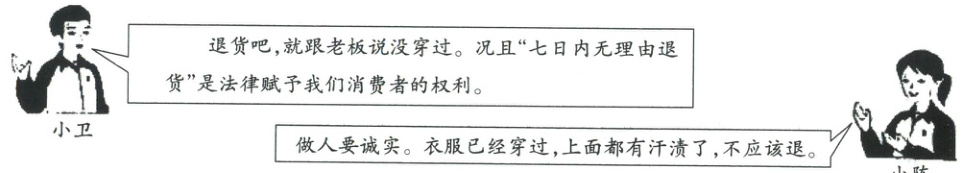 退货吧,就跟老板说没穿过。况且“七日内无理由退
货”是法律赋予我们消费者的权利。
小卫
做人要诚实。衣服已经穿过,上面都有汗渍了,不应该退。